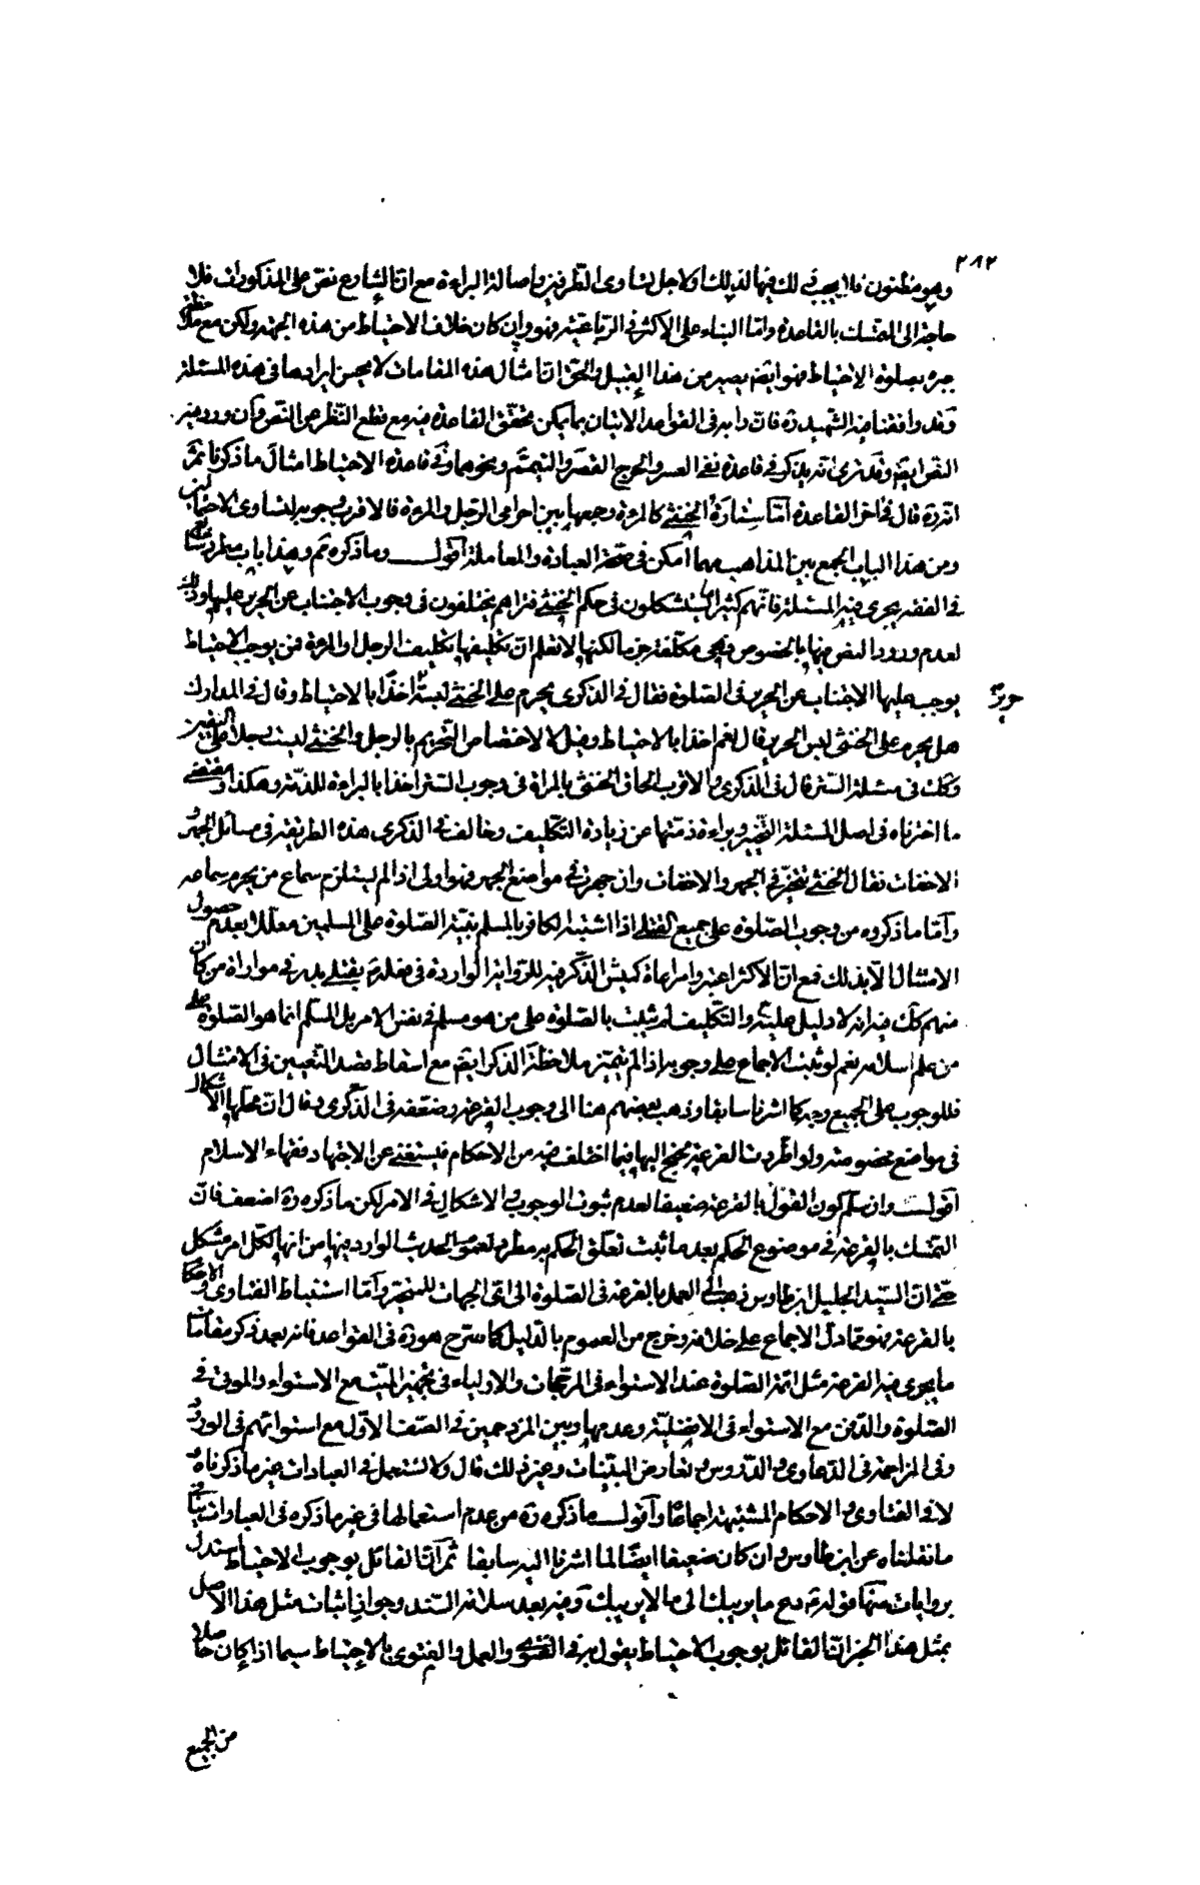 ٢٨٢
وهو مظنون فلا يجب في لك فيها لذلك او لاجل تساوى الطرفين واصالة البراءة مع ان الشارع نص على المذكورات فلا
حاجة الى التمسك بالقاعدة واما البناء على الاكثر في الرباعية فهو وان كان خلاف الاحتياط من هذه الجهة ولكن مع ملاحظة
جبره بصلوة الاحتياط فهو ايضا يصير من هذا القبيل والحق ان امثال هذه المقامات لا يحسن ايرادها في هذه المسئلة
وقد وافقنا فيه الشهيد ره فان دابه في القواعد الاتيان بما يمكن تحقق القاعدة فيه مع قطع النظر عن النص وان ورد فيه
النص ايضا وقد نرى انه يذكر في قاعدة نفى العسر والحرج القصر والتيمم ونحوهما وفي قاعدة الاحتياط امثال ما ذكرنا ثم
انه ره قال في اخر القاعدة اما ستارة الخنثى كالمرءة وجمعها بين احرامى الرجل والمرءة فالاقرب وجوبه لتساوى الاحتمالين
ومن هذا الباب الجمع بين المذاهب مهما امكن في صحة العبادة والمعاملة اقول وما ذكره ثم وهذا باب مطرد
في الفقه يجرى فيه المسئلة فانهم كثيرا ما يستشكلون في حكم الخنثى فتراهم يختلفون في وجوب الاجتناب عن الحرير عليها وذلك
لعدم ورود النص فيها بالخصوص وهى مكلفة جزما لكنها لا تعلم ان تكليفها تكليف الرجل او المرءة فمن يوجب الاحتياط
يوجب عليها الاجتناب عن الحرير في الصلوة فقال في الذكرى يحرم على الخنثى لبسه اخذا بالاحتياط وقال في المدارك
هل يحرم على الخنثى لبس الحرير قال نعم اخذا بالاحتياط وقيل لا لاختصاص التحريم بالرجل والخنثى ليست رجلا على اليقين
وكك في مسئلة الستر قال في الذكرى والاقرب الحاق الخنثى بالمراة في وجوب الستر اخذا بالبراءة للذمة وهكذا ومقتضى
ما اخترناه في اصل المسئلة التخيير وبراءة ذمتها عن زيادة التكليف وخالف في الذكرى هذه الطريقة في مسائل الجهر و
الاخفات فقال الخنثى تتخير في الجهر والاخفات وان جهرت في مواضع الجهر فهو اولى اذا لم يستلزم سماع من يحرم سماعه
واما ما ذكروه من وجوب الصلوة على جميع القتلى اذا اشتبه الكافر بالمسلم بنية الصلوة على المسلمين معللا بعدم حصول
الامتثال الا بذلك فمع ان الاكثر اعتبروا مراعاة كميش الذكر فيه للرواية الواردة في فعله ص بقتلى بدر في مواراة من كان
منهم كك فيه انه لا دليل عليه والتكليف لم يثبت بالصلوة على من هو مسلم في نفس الامر بل المسلم انما هو الصلوة على
من علم اسلامه نعم لو ثبت الاجماع على وجوبه اذا لم يتميز ملاحظة الذكر ايضا مع اسقاط قصد التعيين في الامتثال
فللوجوب على الجميع وجه كما اشرنا سابقا وذهب بعضهم هنا الى وجوب القرعة وضعفه في الذكرى وقال ان محلها الاشكال
في مواضع مخصوصة ولو اطردت القرعة يحتج اليها فيما اختلف فيه من الاحكام فيستغنى عن الاجتهاد فقهاء الاسلام
اقول وان سلم كون القول بالقرعة ضعيفا لعدم ثبوت الوجوب والاشكال في الامر لكن ما ذكره ره اضعف فان
التمسك بالقرعة في موضوع الحكم بعد ما ثبت تعلق الحكم به مطرد لعموم الحديث الوارد فيها من انها لكل امر مشكل
حتى ان السيد الجليل ابن طاوس ذهب الى العمل بالقرعة في الصلوة الى اى الجهات للمتحير واما استنباط الفتاوى والاحكام
بالقرعة فهو مما دل الاجماع على خلافه وخرج من العموم بالدليل كما صرح هو ره في القواعد فانه بعد ذكر مقامات
ما يجرى فيه القرعة مثل ائمة الصلوة عند الاستواء في المرجحات والاولياء في تجهيز الميت مع الاستواء والموتى في
الصلوة والدفن مع الاستواء في الافضلية وعدمها وبين المزدحمين في الصف الاول مع استوائهم في الورود
وفى المزاحمة في الدعاوى والدروس وتعارض البينات وغير ذلك قال ولا تستعمل في العبادات غير ما ذكرناه و
لا في الفتاوى والاحكام المشتبهة اجماعا واقول ما ذكره ره من عدم استعمالها في غير ما ذكره في العبادات
ما نقلناه عن ابن طاوس وان كان ضعيفا ايضا لما اشرنا اليه سابقا ثم ان القائل بوجوب الاحتياط استدل
بروايات منها قوله ع دع ما يريبك الى ما لا يريبك وفيه بعد سلامة السند وجواز اثبات مثل هذا الاصل
بمثل هذا الخبر ان القائل بوجوب الاحتياط يقول به في الفتوى والعمل والفتوى بالاحتياط سيما اذا كان خاصا
من الجميع